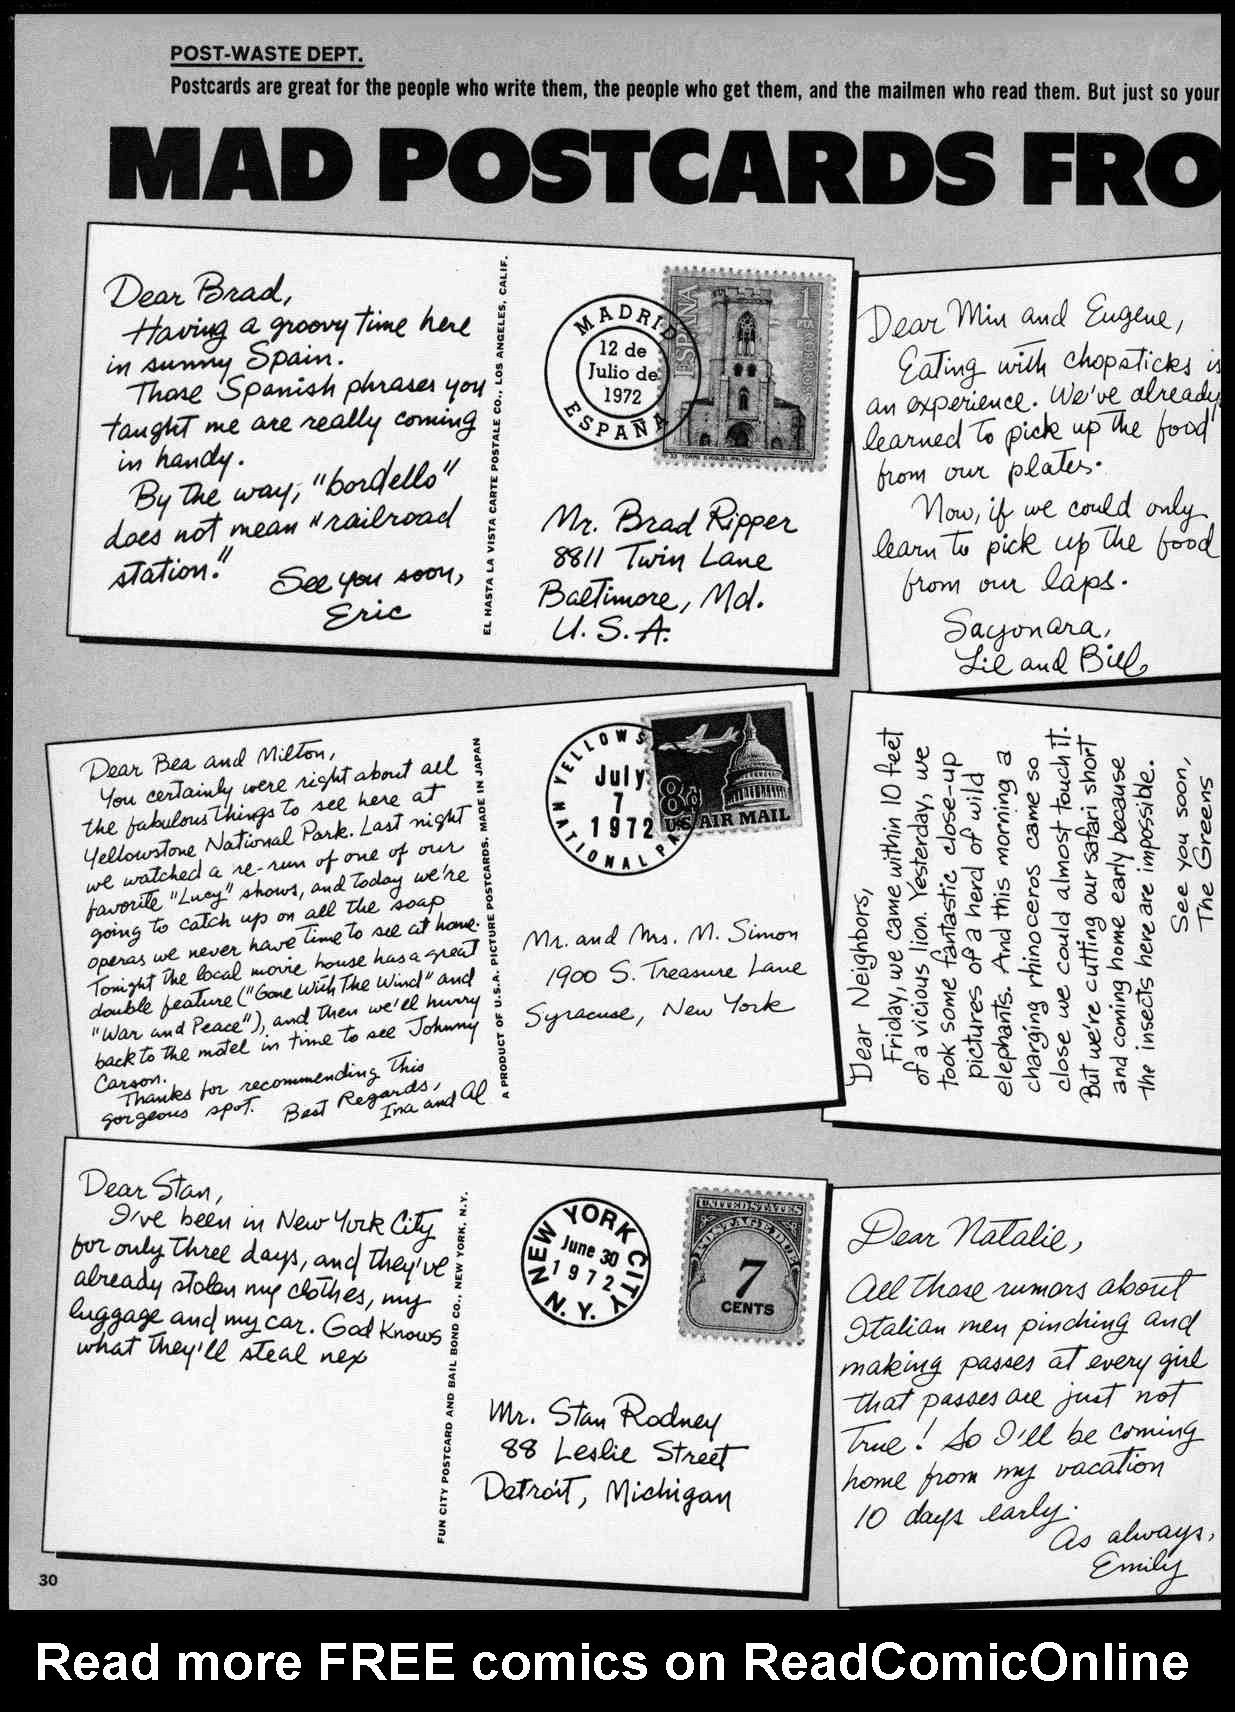 POST-WASTE DEPT.
Postcards are great for the people who write them, the people who get them, and the mailmen who read them. But just so your
MAD POSTCARDS FRO
Dear Brad,
Having a groovy time here
in sunny Spain.
Those Spanish phrases you
taught me are really coming
in handy.
By the way, "bordello"
does not mean "railroad
station."
See you soon,
Eric
EL HASTA LA VISTA CARTE POSTALE CO., LOS ANGELES, CALIF.
MADRID
12 de
Julio de
1972
ESPAÑA
ESPAÑA
1
PTA
CORREOS
Mr. Brad Ripper
8811 Twin Lane
Baltimore, Md.
U. S. A.
Dear Min and Eugene,
Eating with chopsticks is
an experience. We've already
learned to pick up the food
from our plates.
Now, if we could only
learn to pick up the food
from our laps.
Sayonara,
Lil and Bill
Dear Bea and Milton,
You certainly were right about all
the fabulous things to see here at
Yellowstone National Park. Last night
we watched a re-run of one of our
favorite "Lucy" shows, and today we're
going to catch up on all the soap
operas we never have time to see at home.
Tonight the local movie house has a great
double feature ("Gone With The Wind" and
"War and Peace"), and then we'll hurry
back to the motel in time to see Johnny
Carson.
Thanks for recommending this
gorgeous spot.
Best Regards,
Ina and Al
A PRODUCT OF U.S.A. PICTURE POSTCARDS, MADE IN JAPAN
YELLOWS
July
7
1972
NATIONAL PA
8¢
US AIR MAIL
Mr. and Mrs. M. Simon
1900 S. Treasure Lane
Syracuse, New York
Dear Neighbors,
Friday, we came within 10 feet
of a vicious lion. Yesterday, we
took some fantastic close-up
pictures of a herd of wild
elephants. And this morning a
charging rhinoceros came so
close we could almost touch it.
But we're cutting our safari short
and coming home early because
the insects here are impossible.
See you soon,
The Greens
Dear Stan,
I've been in New York City
for only three days, and they've
already stolen my clothes, my
luggage and my car. God knows
what they'll steal nex
FUN CITY POSTCARD AND BAIL BOND CO., NEW YORK, N.Y.
NEW YORK CITY
June 30
1972
N.Y.
UNITED STATES
POSTAGE DUE
7
CENTS
Mr. Stan Rodney
88 Leslie Street
Detroit, Michigan
Dear Natalie,
All those rumors about
Italian men pinching and
making passes at every girl
that passes are just not
true! So I'll be coming
home from my vacation
10 days early.
As always,
Emily
30
Read more FREE comics on ReadComicOnline